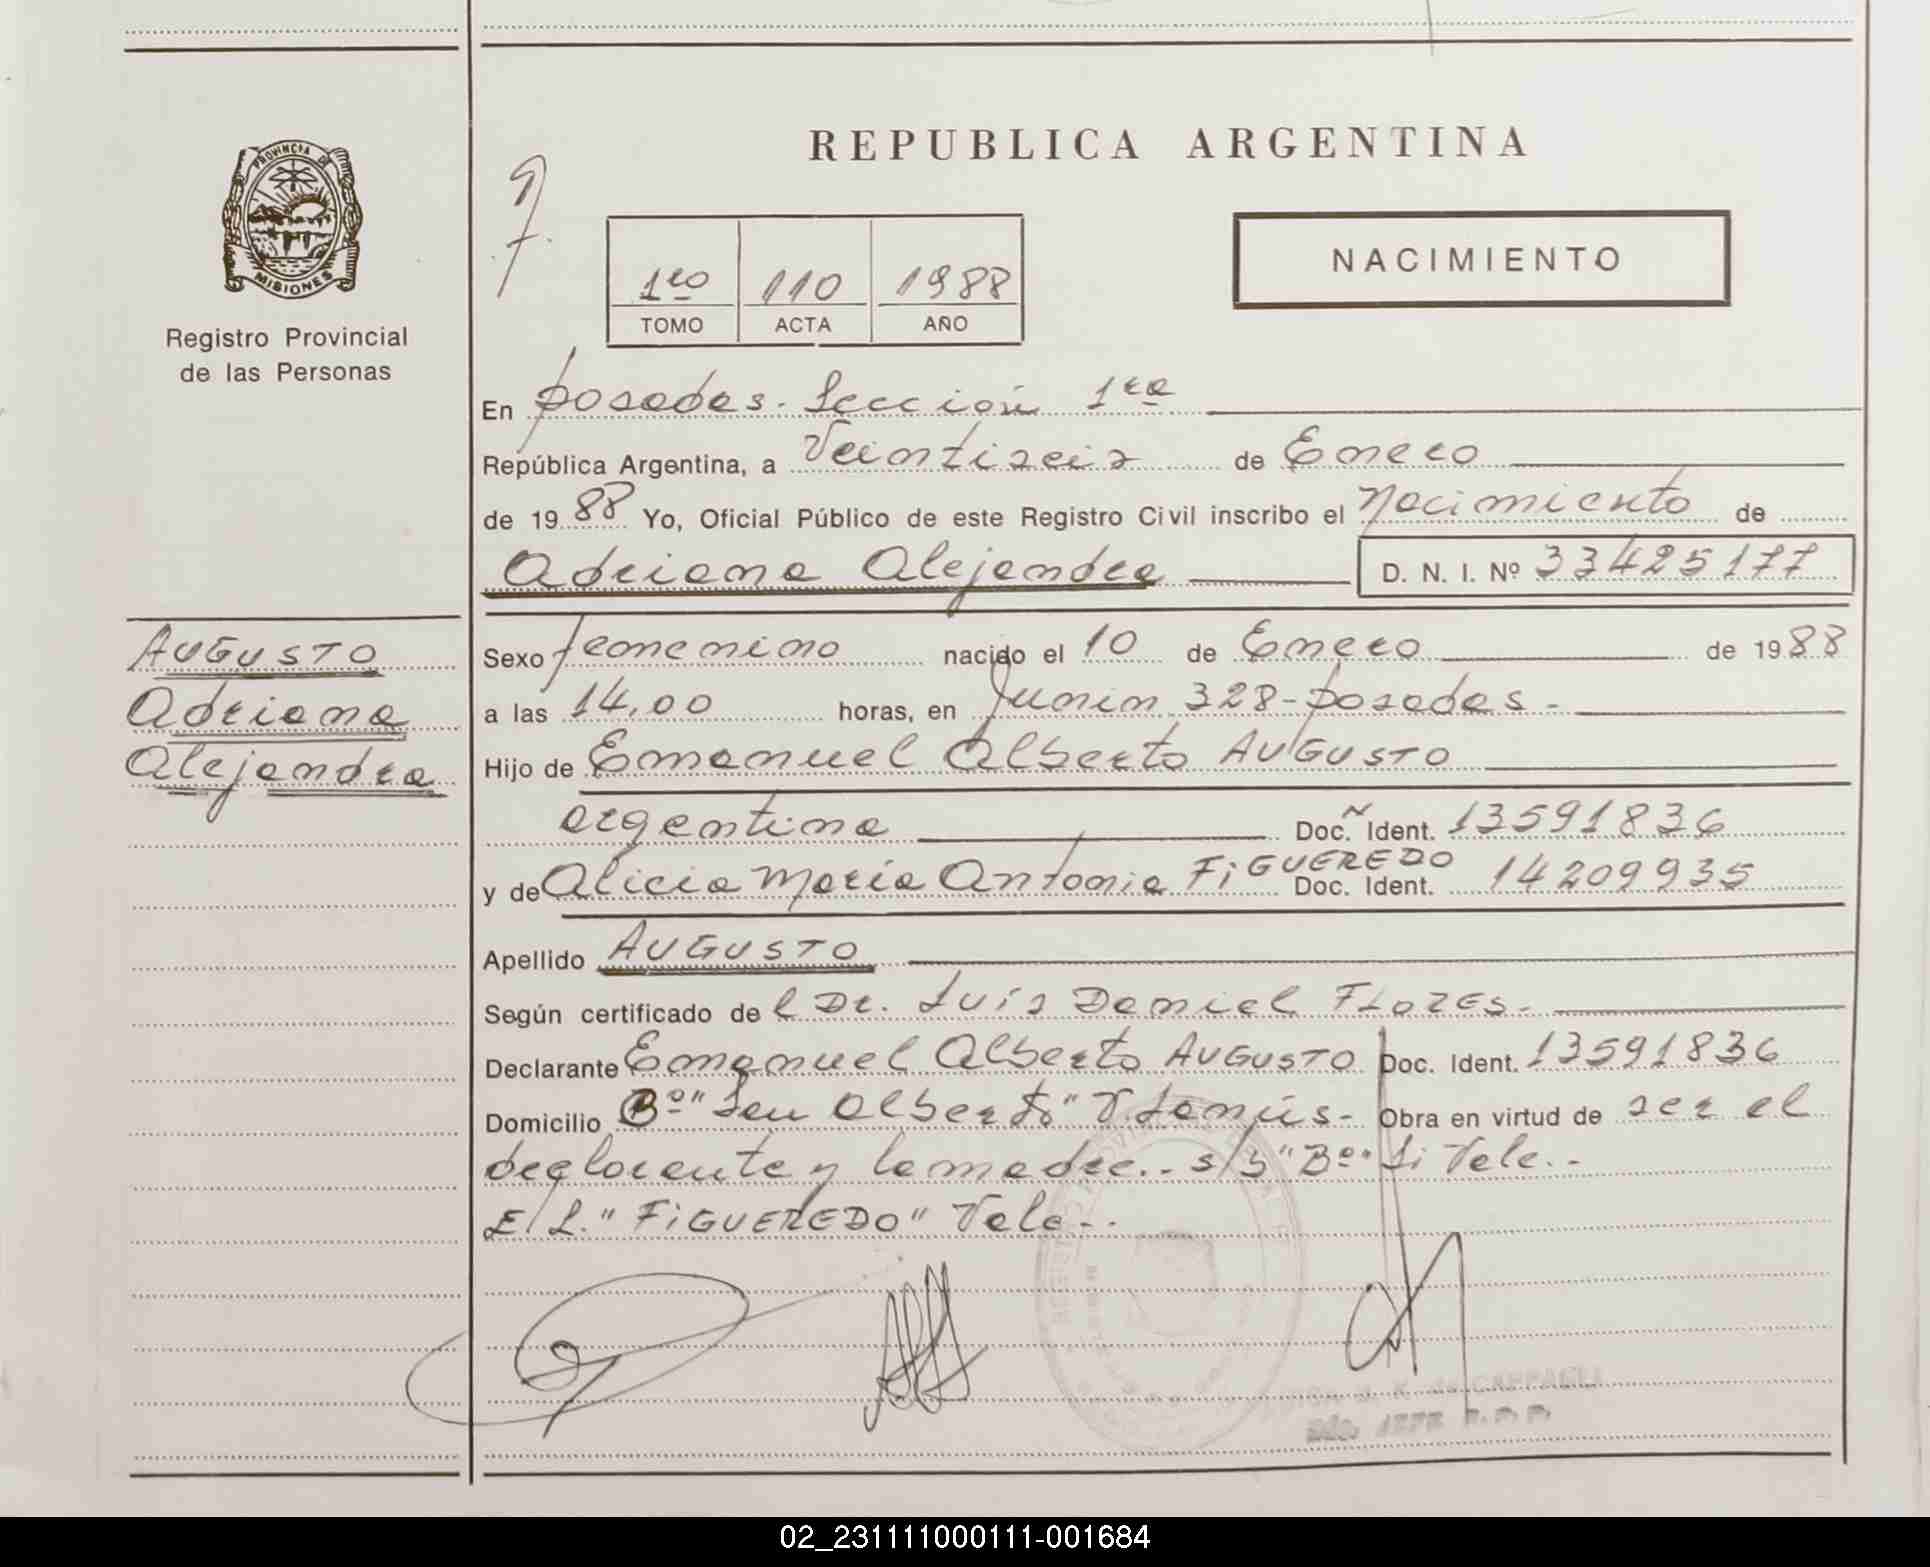 REPUBLICA ARGENTINA
PROVINCIA DE
MISIONES
Registro Provincial
de las Personas
1ro 110 1988
TOMO ACTA AÑO
NACIMIENTO
En Posadas. Sección 1ra
República Argentina, a Veintiseis de Enero
de 1988 Yo, Oficial Público de este Registro Civil inscribo el Nacimiento de
Adriana Alejandra D. N. I. Nº 33425177
AUGUSTO
Adriana
Alejandra
Sexo femenino nacido el 10 de Enero de 1988
a las 14,00 horas, en Junin 328-Posadas-
Hijo de Emanuel Alberto AUGUSTO
argentina Doc. Ident. 13591836
y de Alicia Maria Antonia FiGUEREDO Doc. Ident. 14209935
Apellido AUGUSTO
Según certificado del Dr. Luis Daniel FLORES.-
Declarante Emanuel Alberto AUGUSTO Doc. Ident. 13591836
Domicilio Bº "San Alberto" V. Lanús- Obra en virtud de ser el
declarante y la madre.- s/b "Bº" Si Vale.-
E/L. "FiGUEREDO" Vale-.
CAPPAGLI
JEFE R.P.P.
02_231111000111-001684